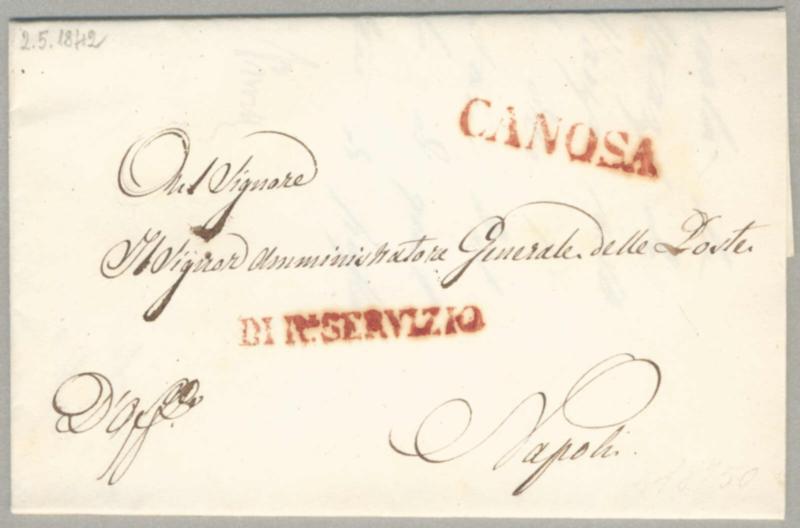 2.5.1842
CANOSA
Al Signore
Il Signor Amministratore Generale delle Poste
DI Rˡ SERVIZIO
Napoli